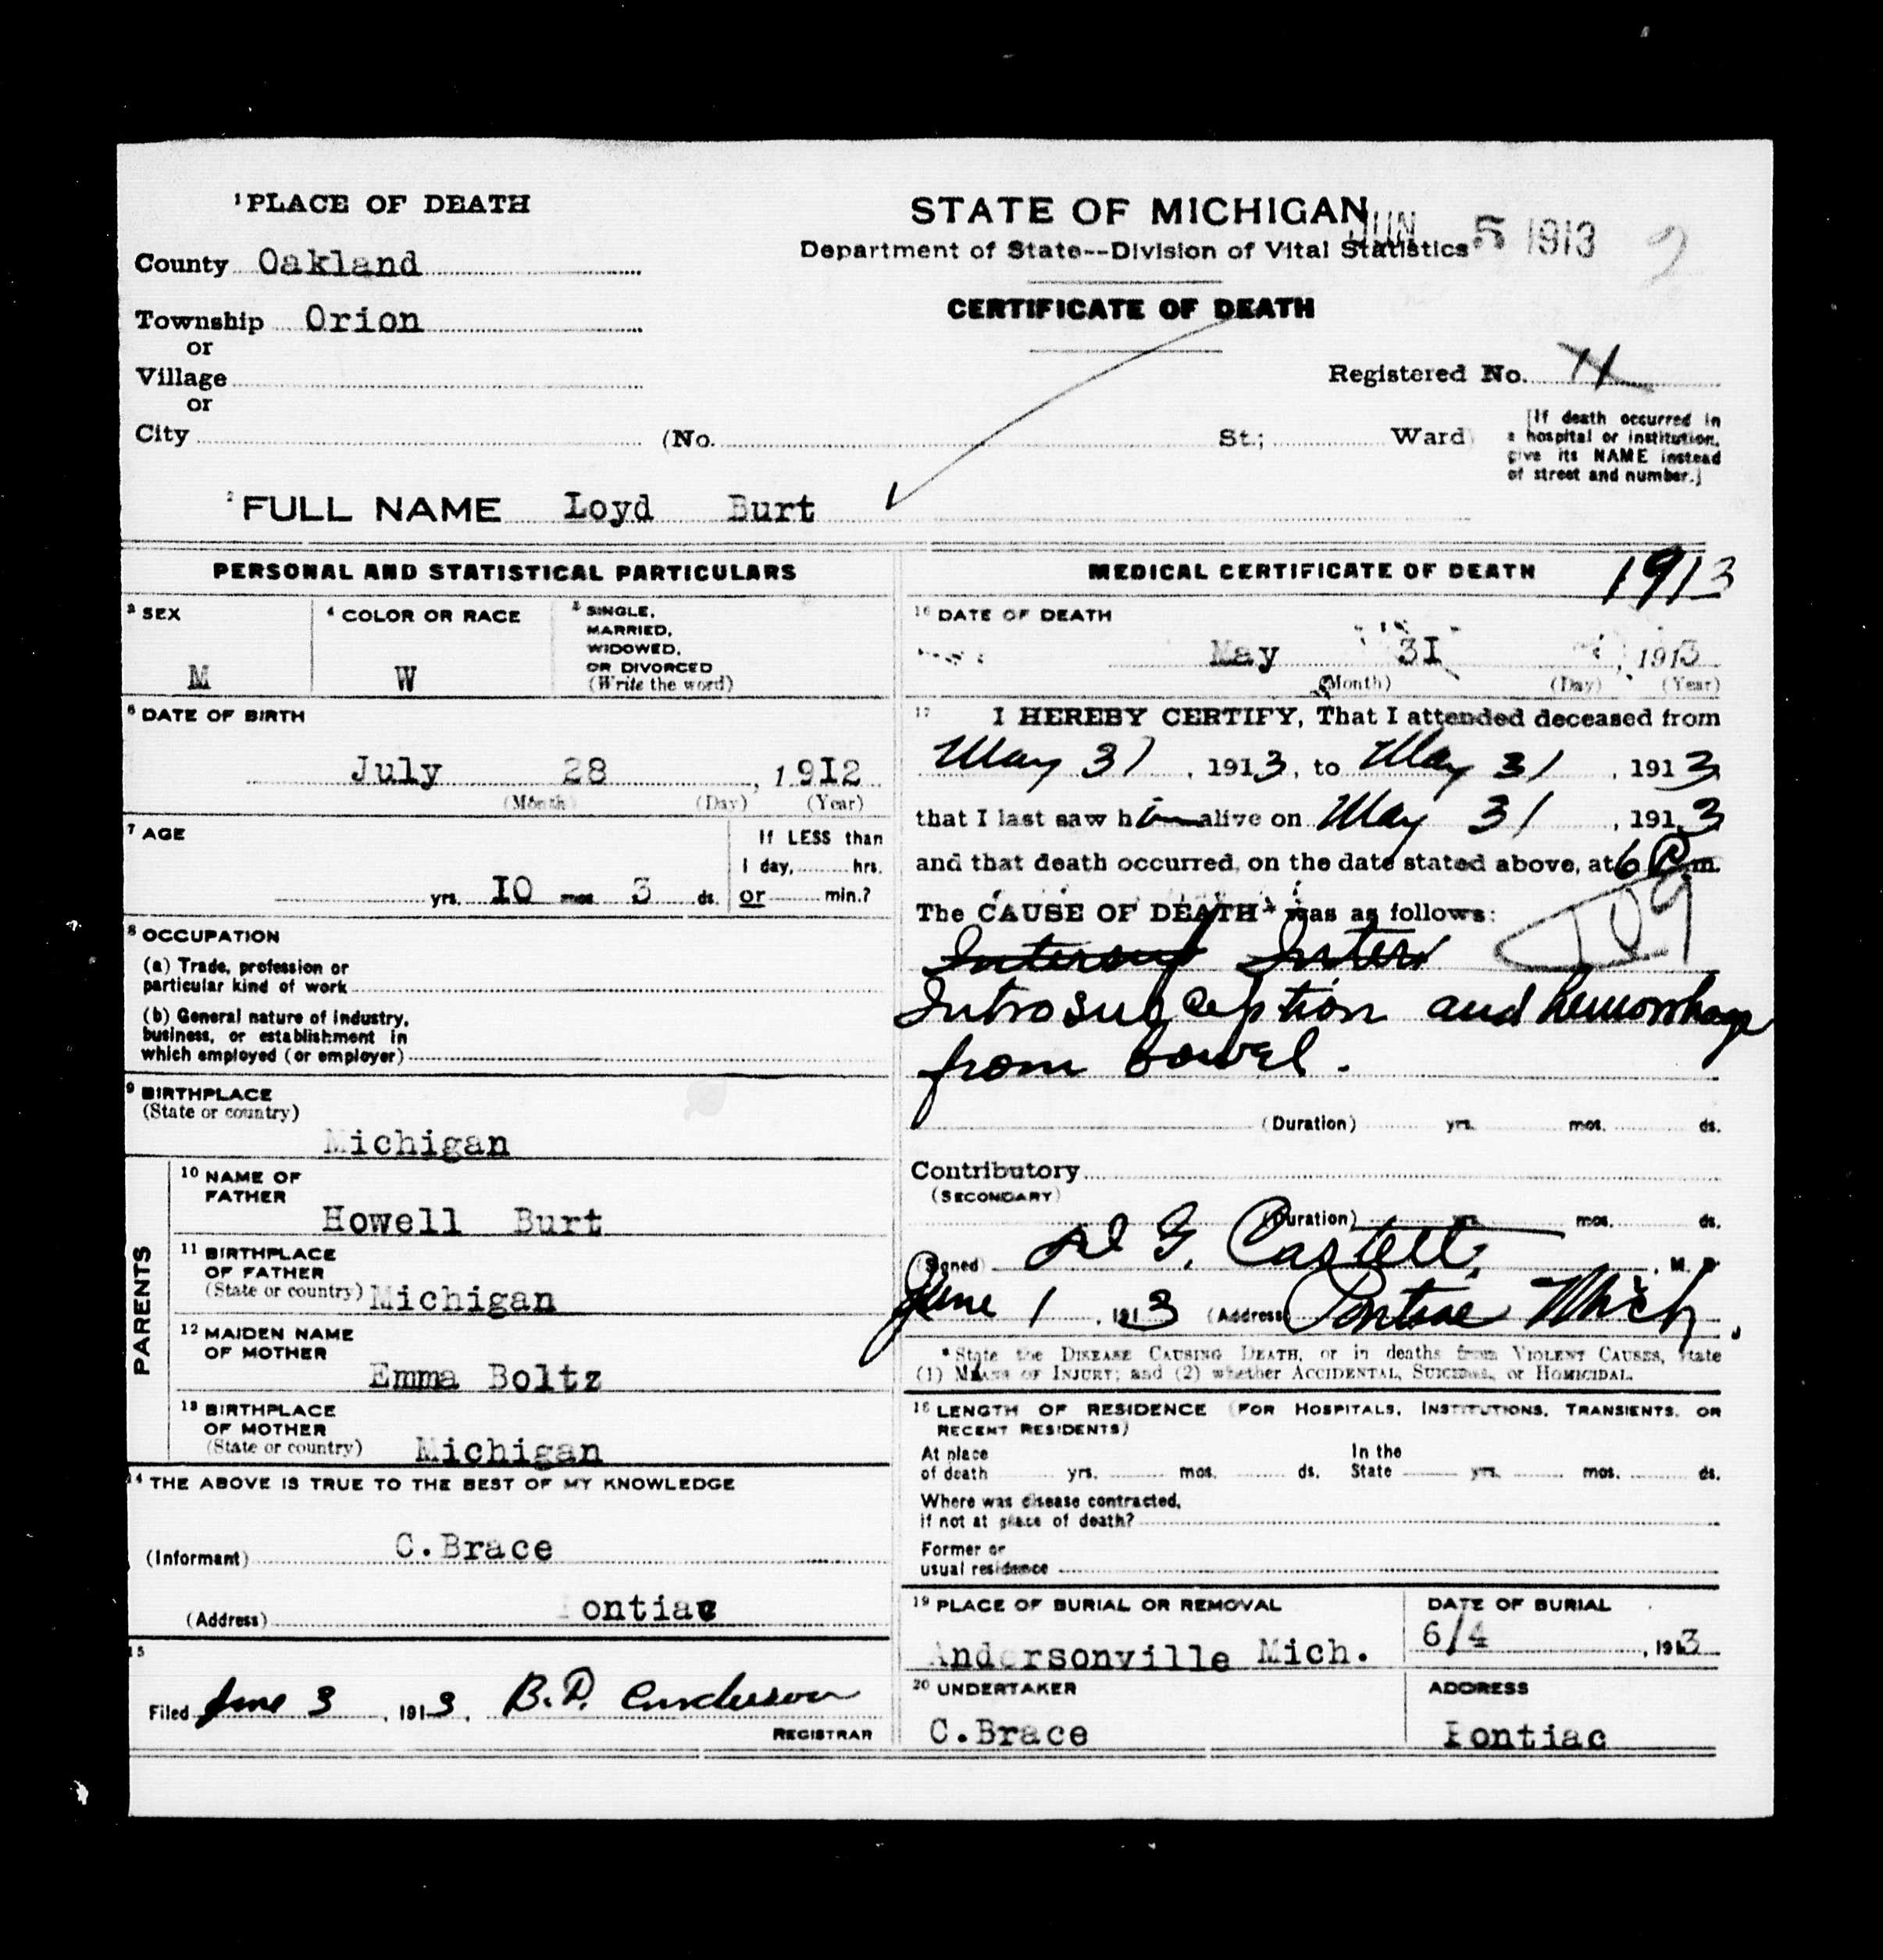 ¹PLACE OF DEATH
County Oakland
Township Orion
or
Village
or
City (No. St.; Ward)
STATE OF MICHIGAN
JUN 5 1913
Department of State--Division of Vital Statistics
CERTIFICATE OF DEATH
Registered No. 11
[If death occurred in
a hospital or institution,
give its NAME instead
of street and number.]
²FULL NAME Loyd Burt
PERSONAL AND STATISTICAL PARTICULARS
³ SEX
M
⁴ COLOR OR RACE
W
⁵ SINGLE,
MARRIED,
WIDOWED,
OR DIVORCED
(Write the word)
⁶ DATE OF BIRTH
July 28, 1912
(Month) (Day) (Year)
⁷ AGE
yrs. 10 mos 3 ds.
If LESS than
1 day, hrs.
or min.?
⁸ OCCUPATION
(a) Trade, profession or
particular kind of work
(b) General nature of industry,
business, or establishment in
which employed (or employer)
⁹ BIRTHPLACE
(State or country)
Michigan
PARENTS
¹⁰ NAME OF
FATHER
Howell Burt
¹¹ BIRTHPLACE
OF FATHER
(State or country) Michigan
¹² MAIDEN NAME
OF MOTHER
Emma Boltz
¹³ BIRTHPLACE
OF MOTHER
(State or country) Michigan
¹⁴ THE ABOVE IS TRUE TO THE BEST OF MY KNOWLEDGE
(Informant) C.Brace
(Address) Pontiac
¹⁵
Filed June 3, 1913, B.P. Anderson
REGISTRAR
MEDICAL CERTIFICATE OF DEATH 1913
¹⁶ DATE OF DEATH
May 31, 1913
(Month) (Day) (Year)
¹⁷ I HEREBY CERTIFY, That I attended deceased from
May 31, 1913, to May 31, 1913
that I last saw him alive on May 31, 1913
and that death occurred, on the date stated above, at 6 P.m.
The CAUSE OF DEATH* was as follows:
109
Introsusception and hemorrhage
from bowel.
(Duration) yrs. mos. ds.
Contributory
(SECONDARY)
(Duration) yrs. mos. ds.
(Signed) G. Castell, M. D.
June 1, 1913 (Address) Pontiac Mich.
*State the DISEASE CAUSING DEATH, or in deaths from VIOLENT CAUSES, state
(1) MEANS OF INJURY; and (2) whether ACCIDENTAL, SUICIDAL, or HOMICIDAL.
¹⁸ LENGTH OF RESIDENCE (FOR HOSPITALS, INSTITUTIONS, TRANSIENTS, OR
RECENT RESIDENTS)
At place
of death yrs. mos. ds.
In the
State yrs. mos. ds.
Where was disease contracted,
if not at place of death?
Former or
usual residence
¹⁹ PLACE OF BURIAL OR REMOVAL
Andersonville Mich.
DATE OF BURIAL
6/4, 1913
²⁰ UNDERTAKER
C.Brace
ADDRESS
Pontiac